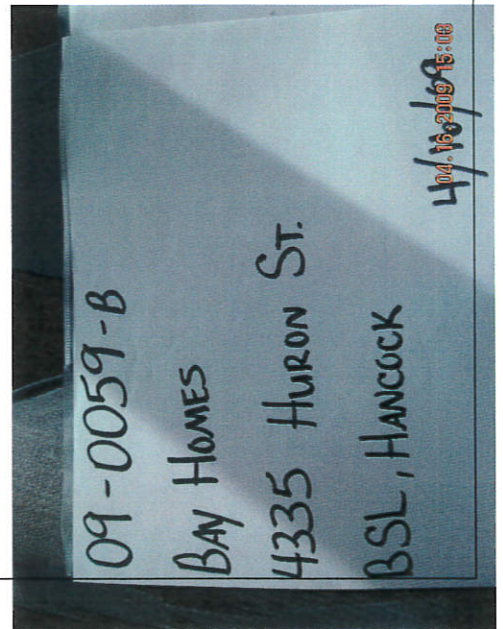 09-0059-B
BAY HOMES
4335 HURON ST.
BSL, HANCOCK
4/16/09
04.16.2009 15:03